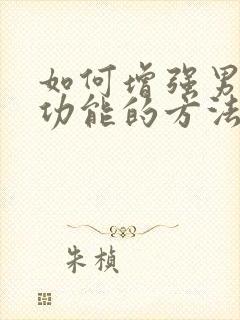 如何增强男
功能的方法
朱桢